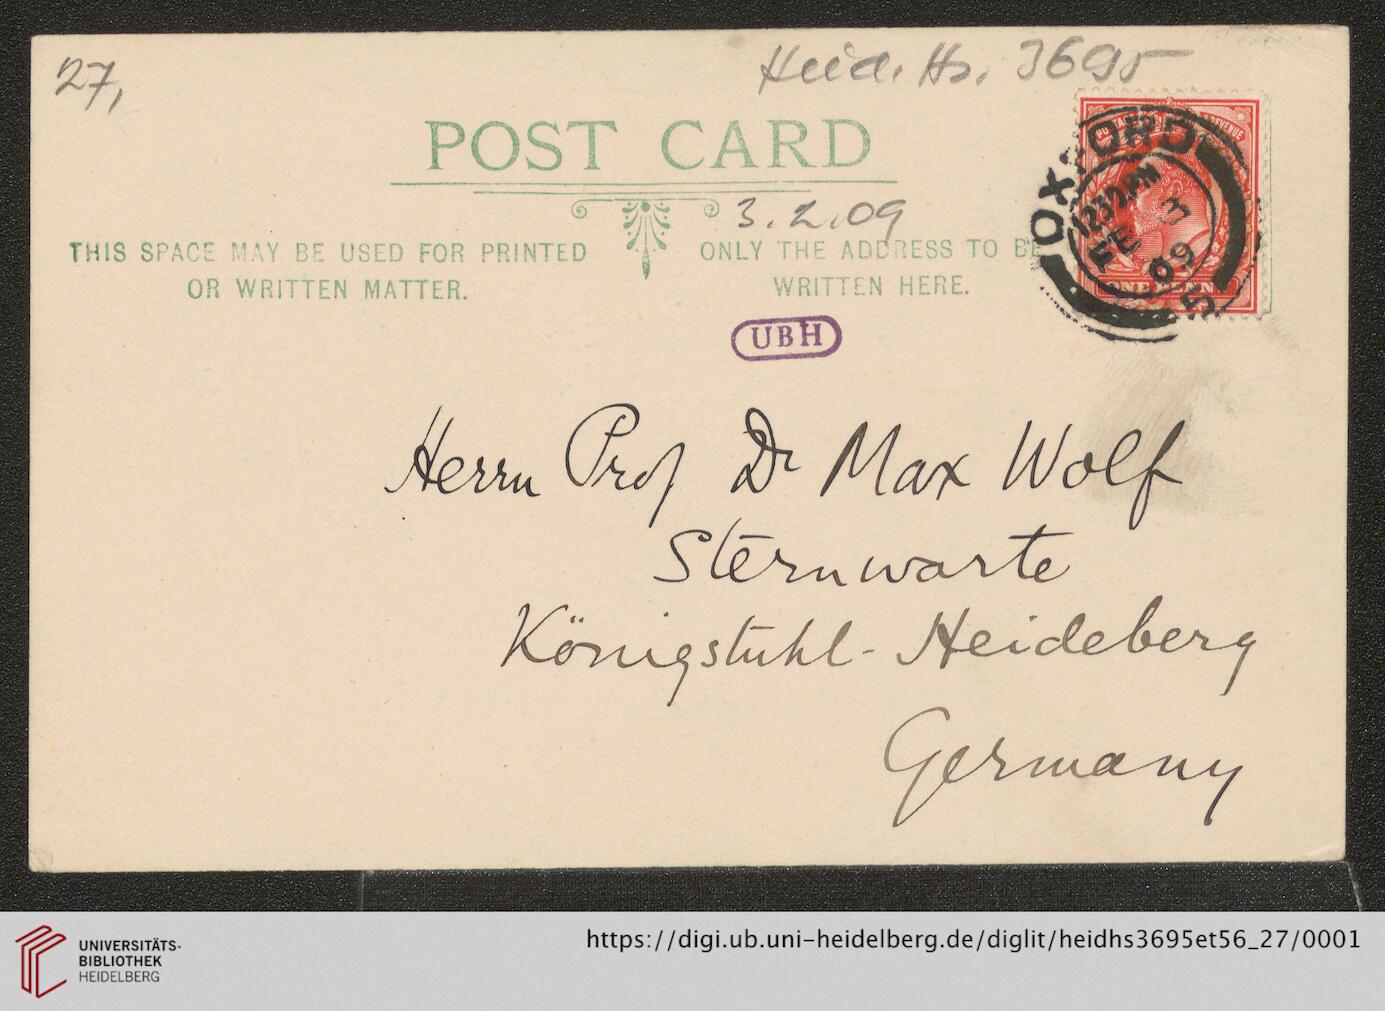 27,
Heid. Hs. 3695
POST CARD
3.2.09
THIS SPACE MAY BE USED FOR PRINTED
OR WRITTEN MATTER.
ONLY THE ADDRESS TO BE
WRITTEN HERE.
OXFORD
1230PM
FE 3
09
5
REVENUE
UBH
Herrn Prof Dr Max Wolf
Sternwarte
Königstuhl - Heideberg
Germany
UNIVERSITÄTS-
BIBLIOTHEK
HEIDELBERG
https://digi.ub.uni-heidelberg.de/diglit/heidhs3695et56_27/0001